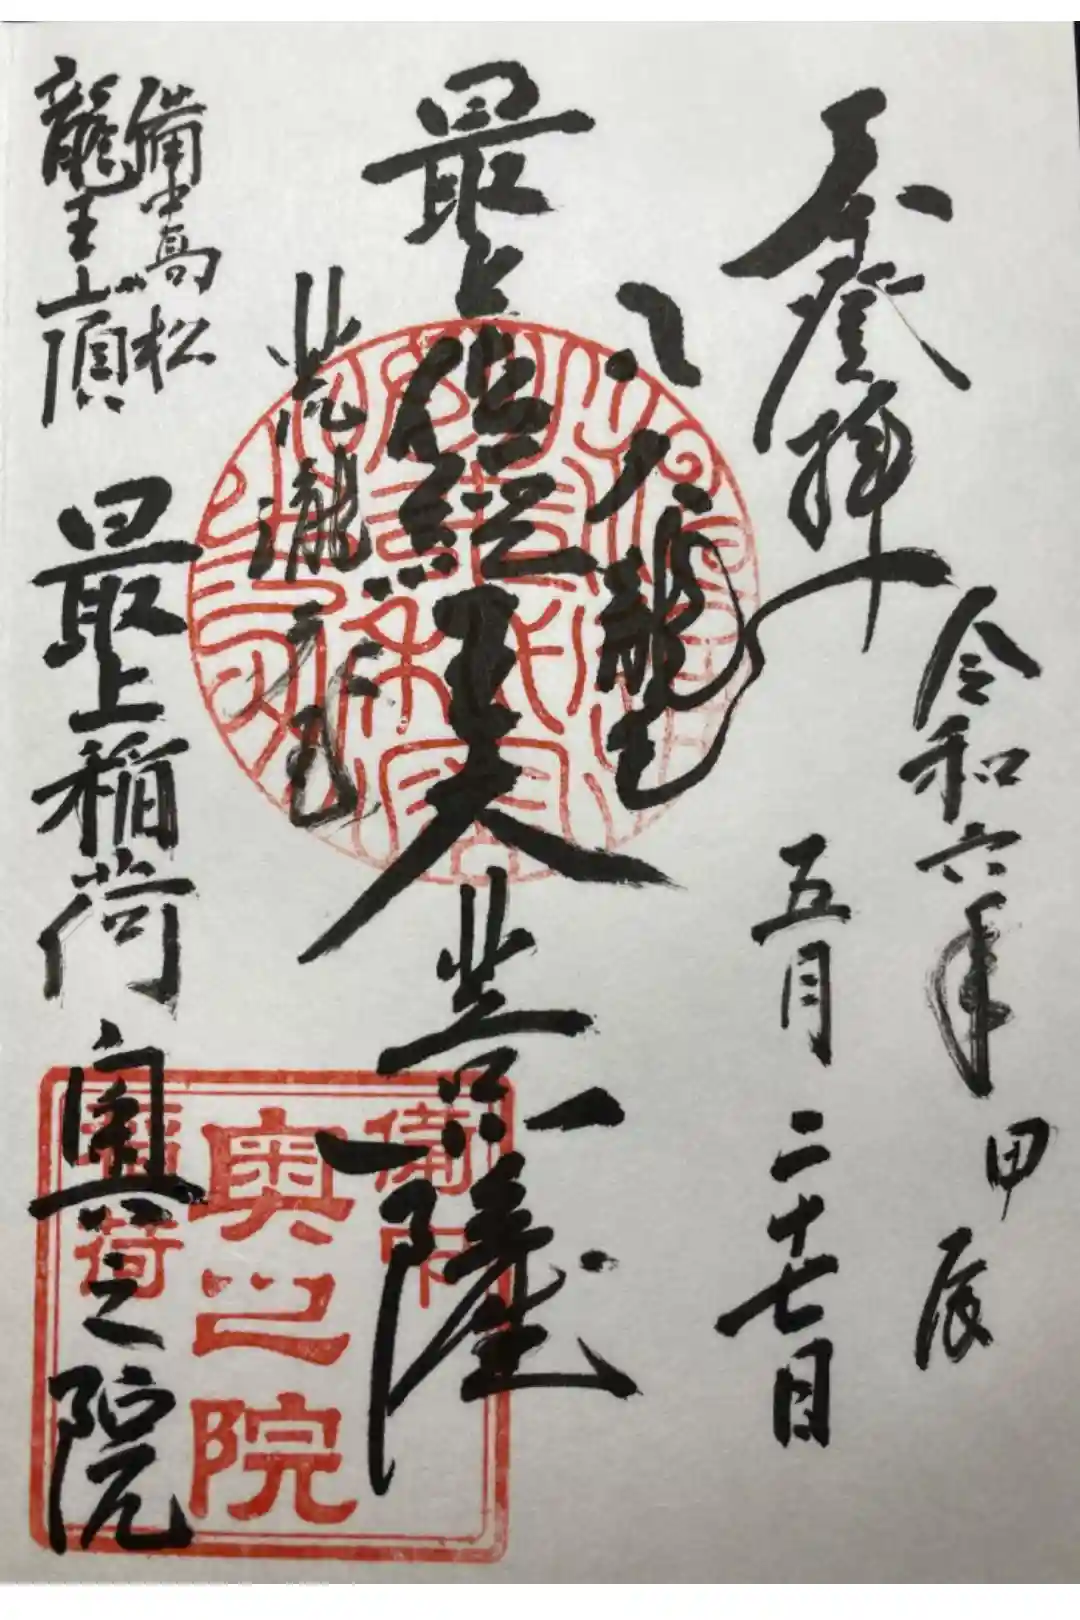 奉登拝
令和六年 甲辰
五月二十七日
八大龍王
最上位經王大菩薩
備中高松
龍王山頂
最上稲荷奥之院
備中
奥之院
稲荷